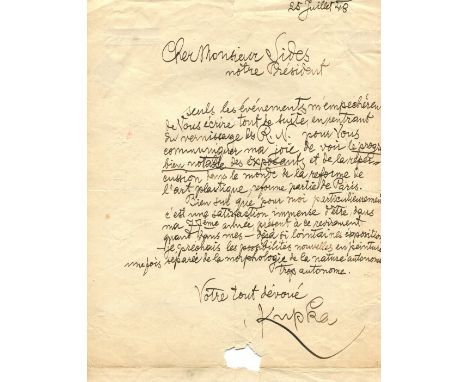 25 Juillet 48
Cher Monsieur Sidès
nôtre Président
seuls les événements m'empechèren
de Vous écrire tout de suite en rentrant
du vernissage des R. N. pour Vous
communiquer ma joie de voir le progr
bien notable des exposants, et de la réper
cussion dans le monde de la reforme de
l'art plastique, reforme partie de Paris.
Bien sur que pour moi particulièrement
c'est une satisfaction immense d'être dans
ma 77ème année présent à ce revirement
quand dans mes - déjà si lointaines exposition
je prechais les possibilites nouvelles en peinture
une fois separée de la morphologie de la nature autonome
trop autonome.
Votre tout dévoué
Kupka